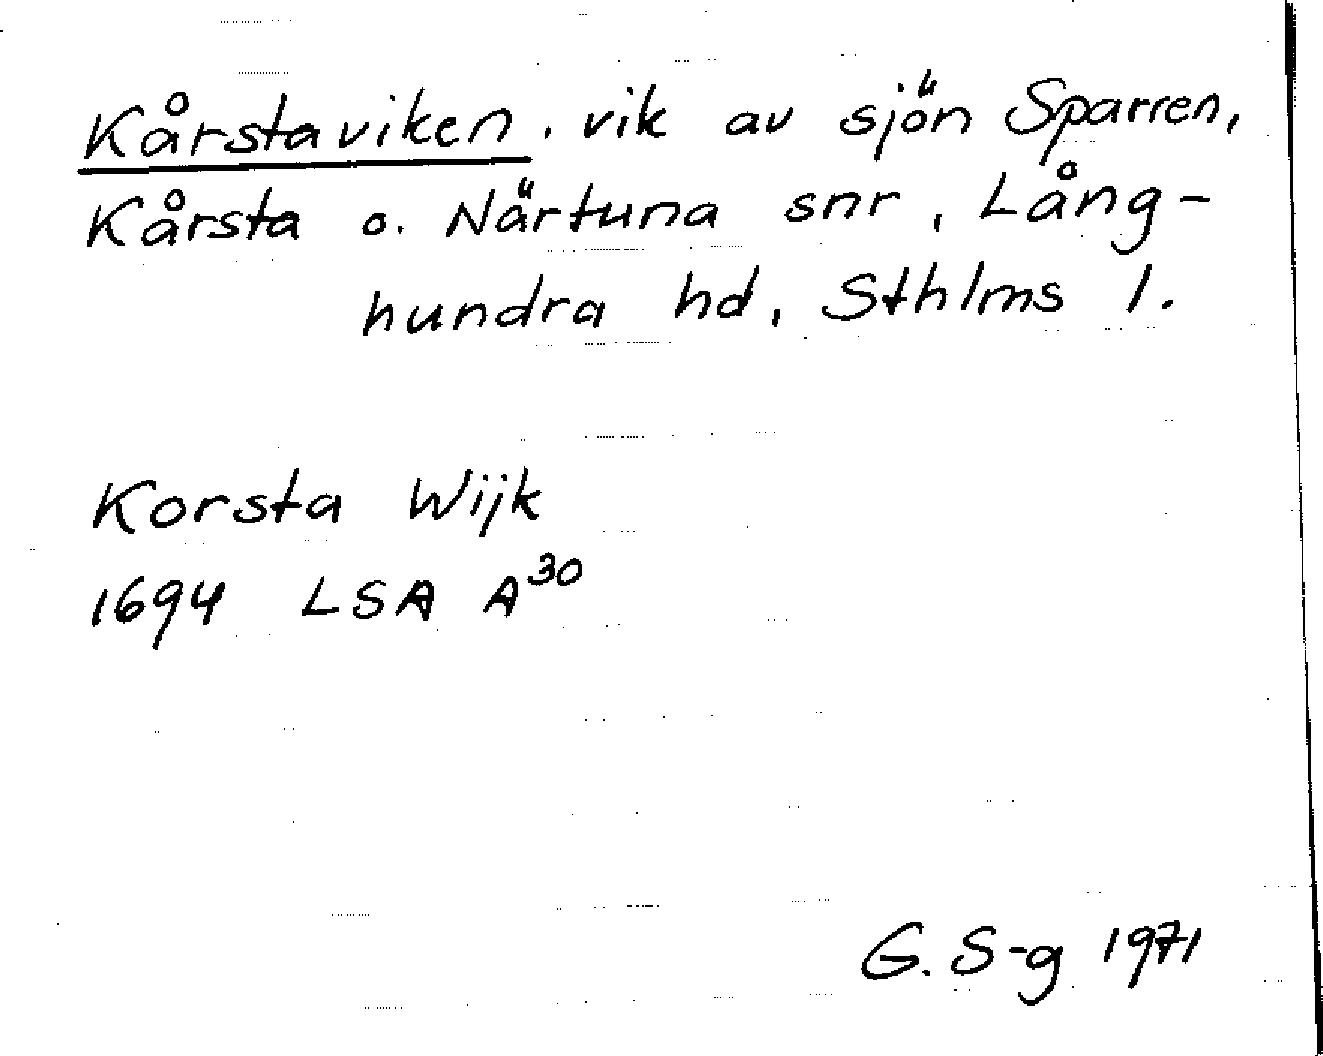 Kårstaviken, vik av sjön Sparren,
Kårsta o. Närtuna snr, Lång-
hundra hd, Sthlms l.
Korsta Wijk
1694 LSA A30
G. S-g 1971